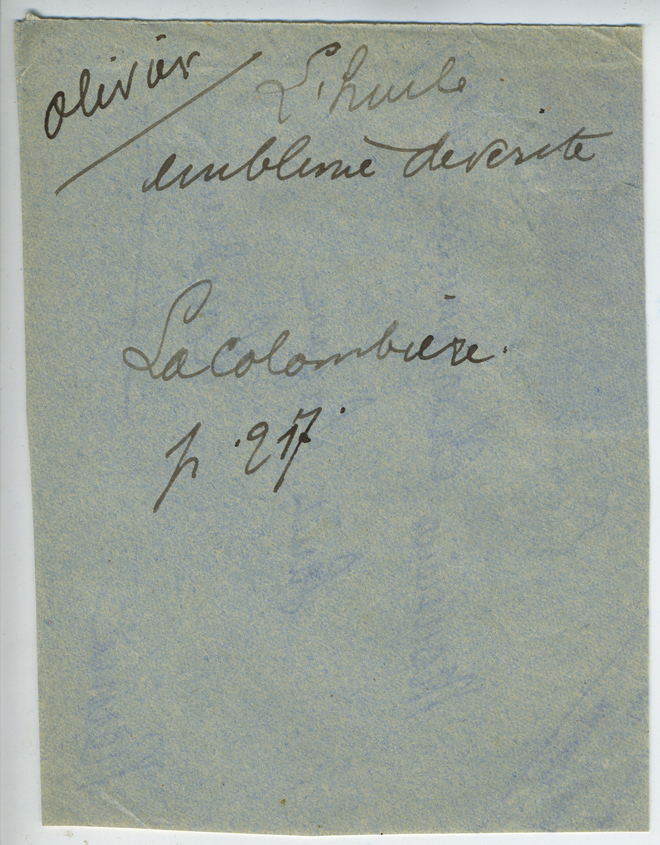 olivier
L'huile
emblème de verite
La Colombière.
p. 217.